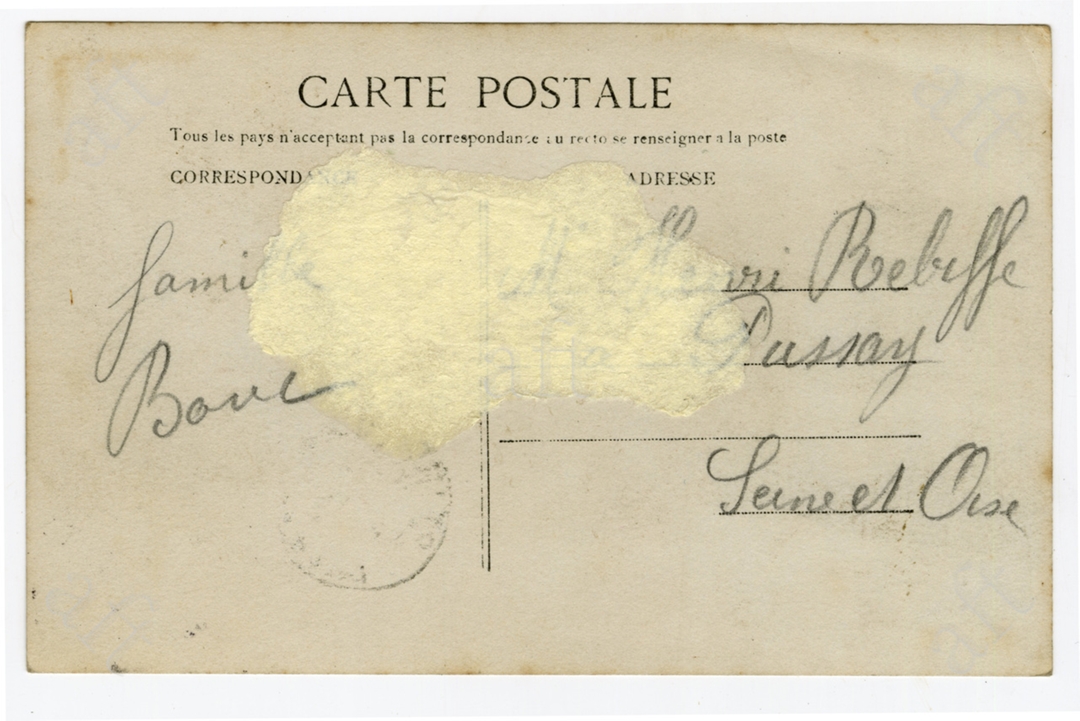 CARTE POSTALE
Tous les pays n'acceptent pas la correspondance au recto se renseigner a la poste
CORRESPONDANCE
ADRESSE
famille
Henri Rebiffe
Pussay
Seine et Oise